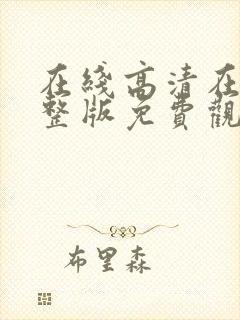 在綫高清在
整版免費觀
布里森